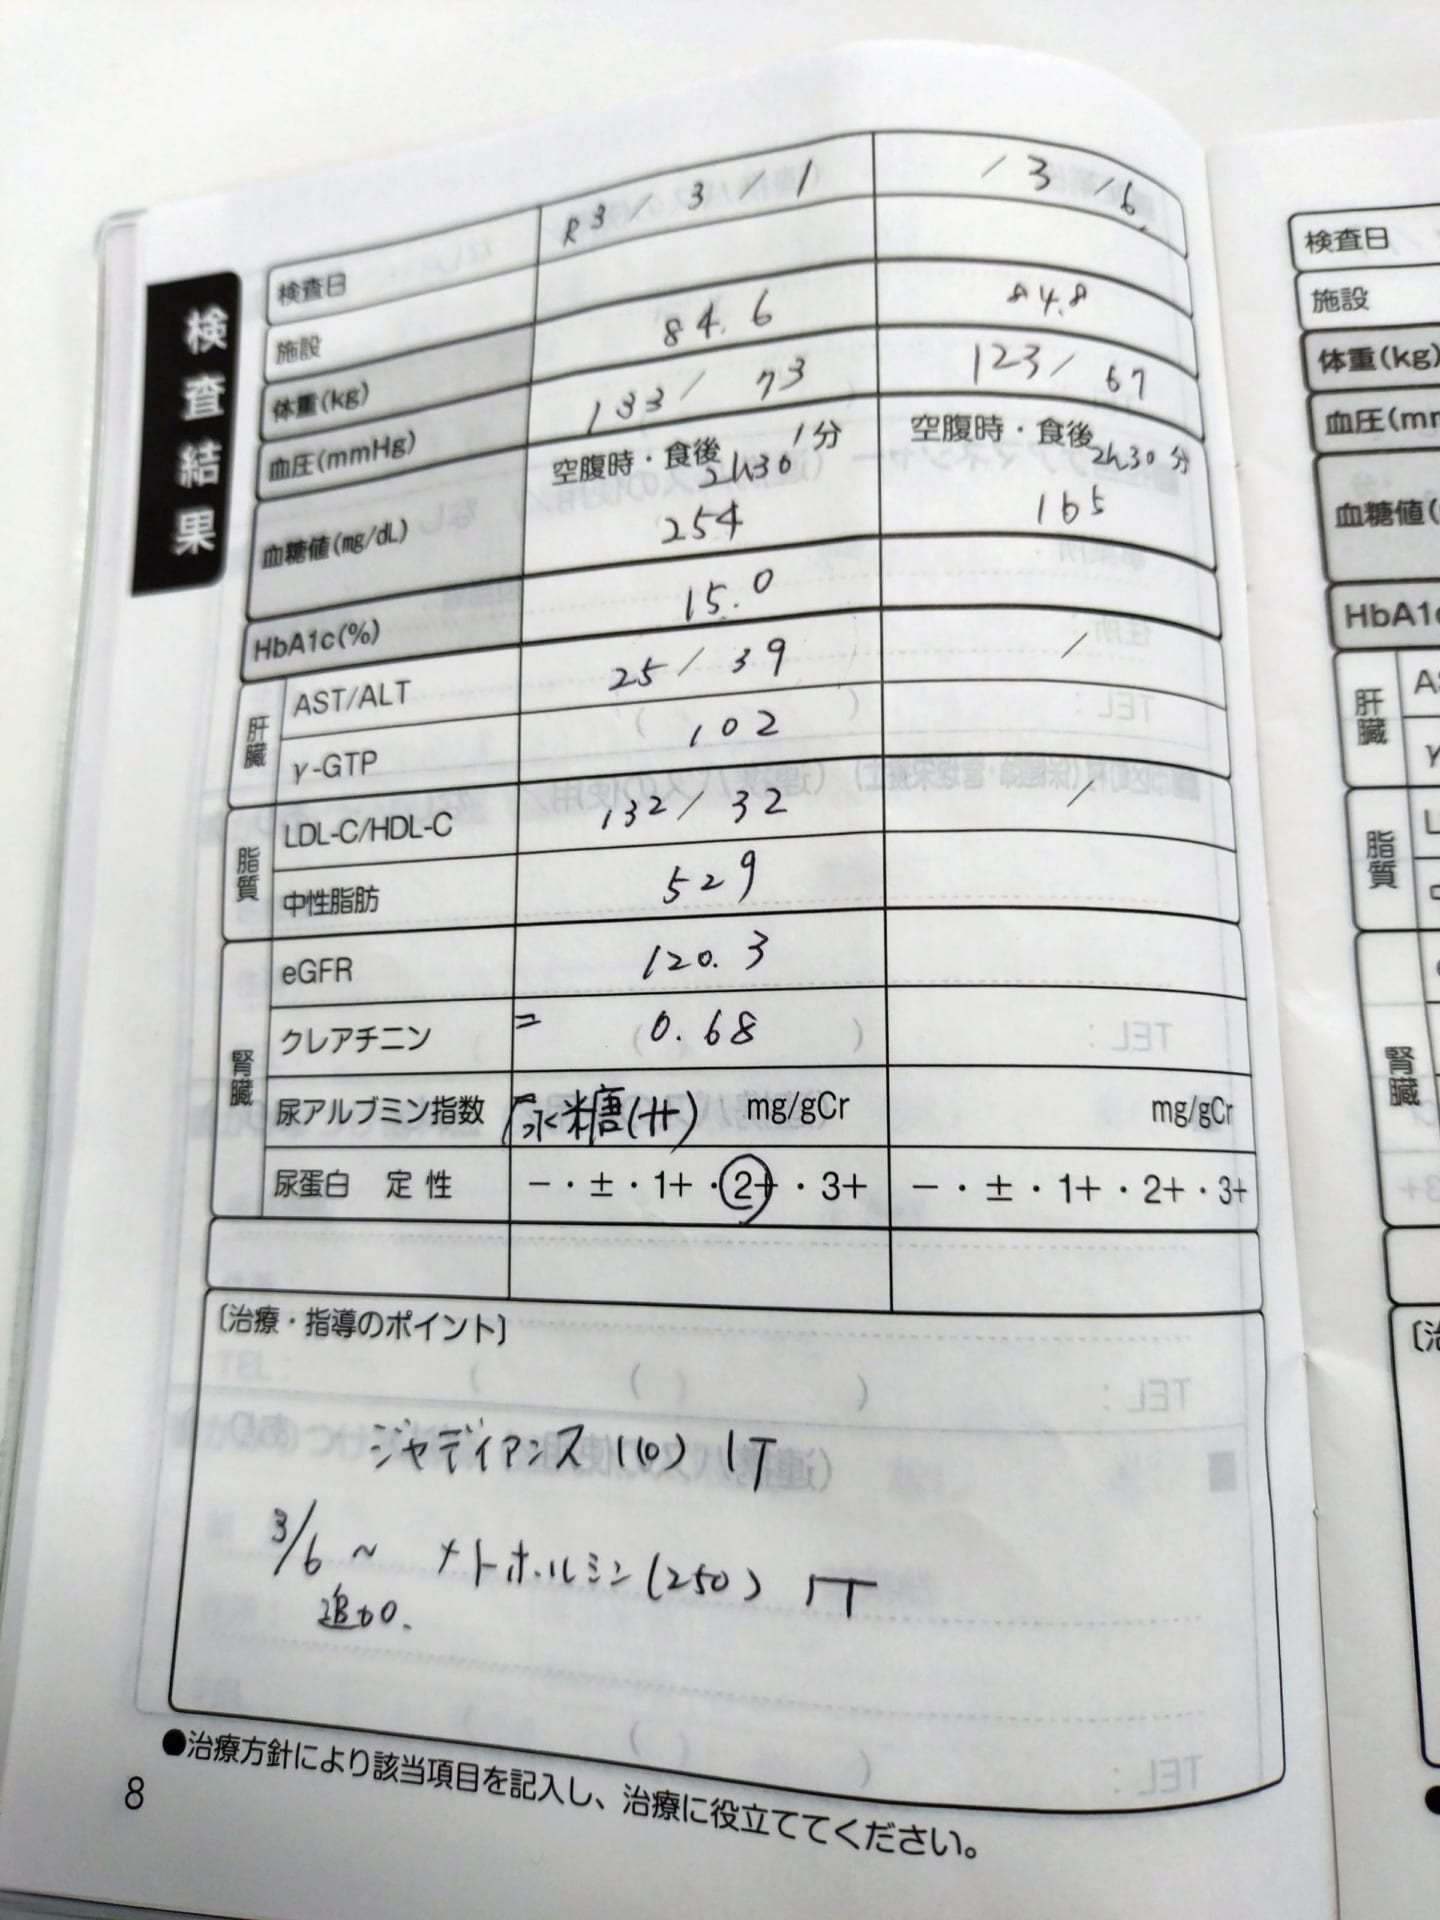 検査結果
検査日 R3 / 3 / 1 / 3 / 6
施設
体重(kg) 84.6 84.8
血圧(mmHg) 133 / 73 123 / 67
血糖値(mg/dL) 空腹時・食後 2h30 分 空腹時・食後 2h30 分
254 165
HbA1c(%) 15.0
肝臓
AST/ALT 25 / 39 /
γ-GTP 102
脂質
LDL-C/HDL-C 132 / 32 /
中性脂肪 529
腎臓
eGFR 120.3
クレアチニン = 0.68
尿アルブミン指数 尿糖(++) mg/gCr mg/gCr
尿蛋白 定性 −・±・1+・2+・3+ −・±・1+・2+・3+
〔治療・指導のポイント〕
ジャディアンス(10) 1T
3/6 〜 メトホルミン(250) 1T
追加.
●治療方針により該当項目を記入し、治療に役立ててください。
8
検査日
施設
体重(kg)
血圧(mm
血糖値(
HbA1c
肝臓
脂質
腎臓
〔治